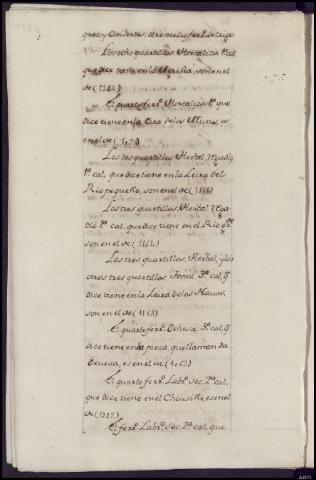 ques, y Condentes, otro medio ferr.º de trigo
Los ocho quartillos, Hortaliza 1ª cal.
que dice tiene en la Moriña, son en el
de (1242.)
El quarto ferr.º Hortaliza 1ª que
dice tiene en la Eira de los Munos, es
en el de
Los dos quartillos Herbal
1ª cal, que dice tiene en la Leira del
Rio pequeño, son en el de (1111.)
Los tres quartillos, Herbal
1ª cal. que dice tiene en el Rio
son en el de (1112.)
Los tres quartillos, Herbal, y los
otros tres quartillos Tojal 3ª cal, q.
dice tiene en la Leira de los
son en el de
El quarto ferr.º Dehesa 3ª cal, q.
dice tiene en la pieza, que llaman da
Devesa, es en el de
El quarto ferr.º Lab.º sec. 2ª cal,
que dice tiene en el Chousiño, es en el
de (1237.)
El ferr.º Lab.º sec. 2ª cal, que